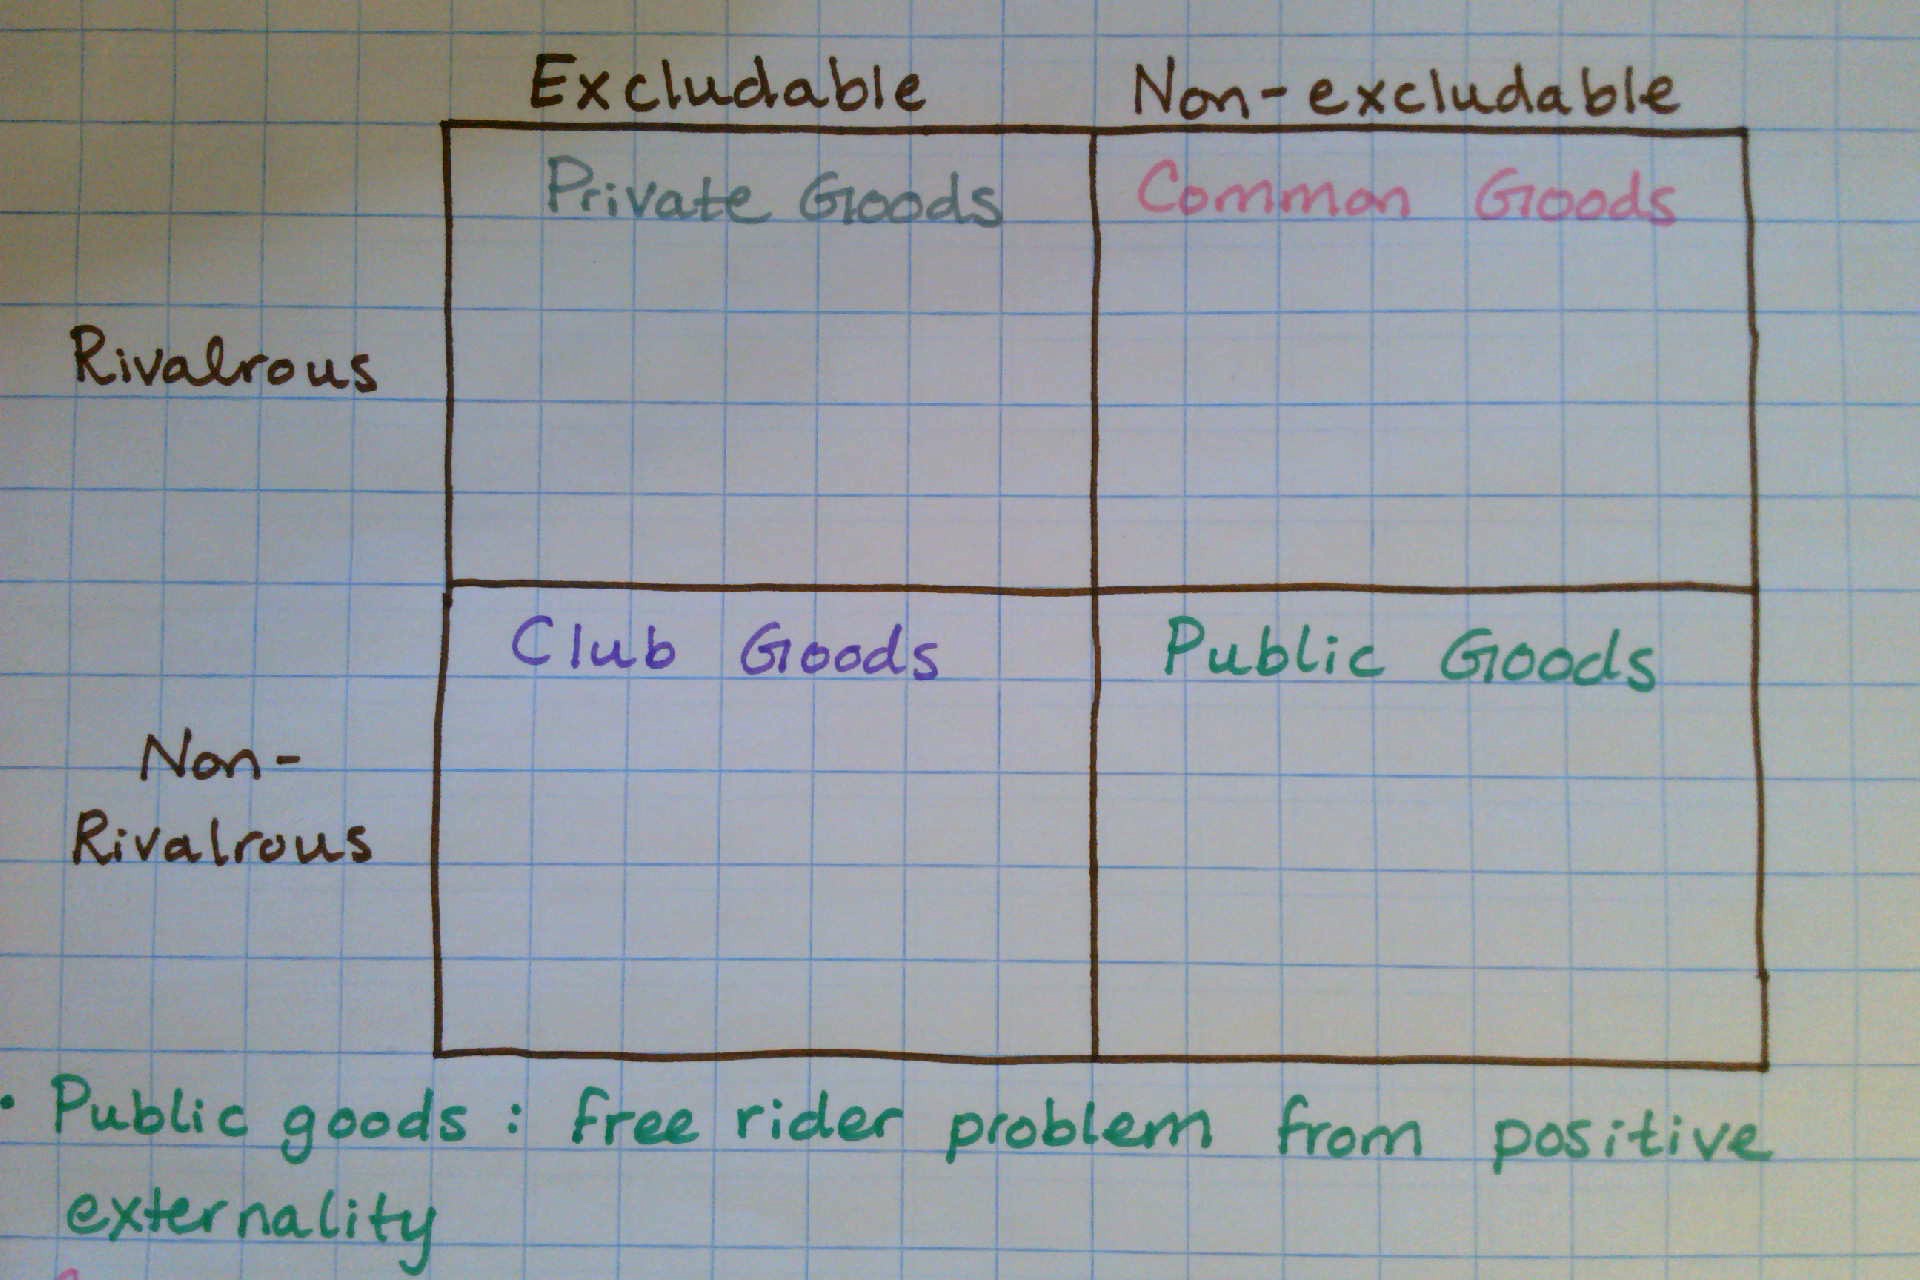 Excludable Non-excludable
Private Goods Common Goods
Rivalrous
Club Goods Public Goods
Non-
Rivalrous
· Public goods : free rider problem from positive
externality